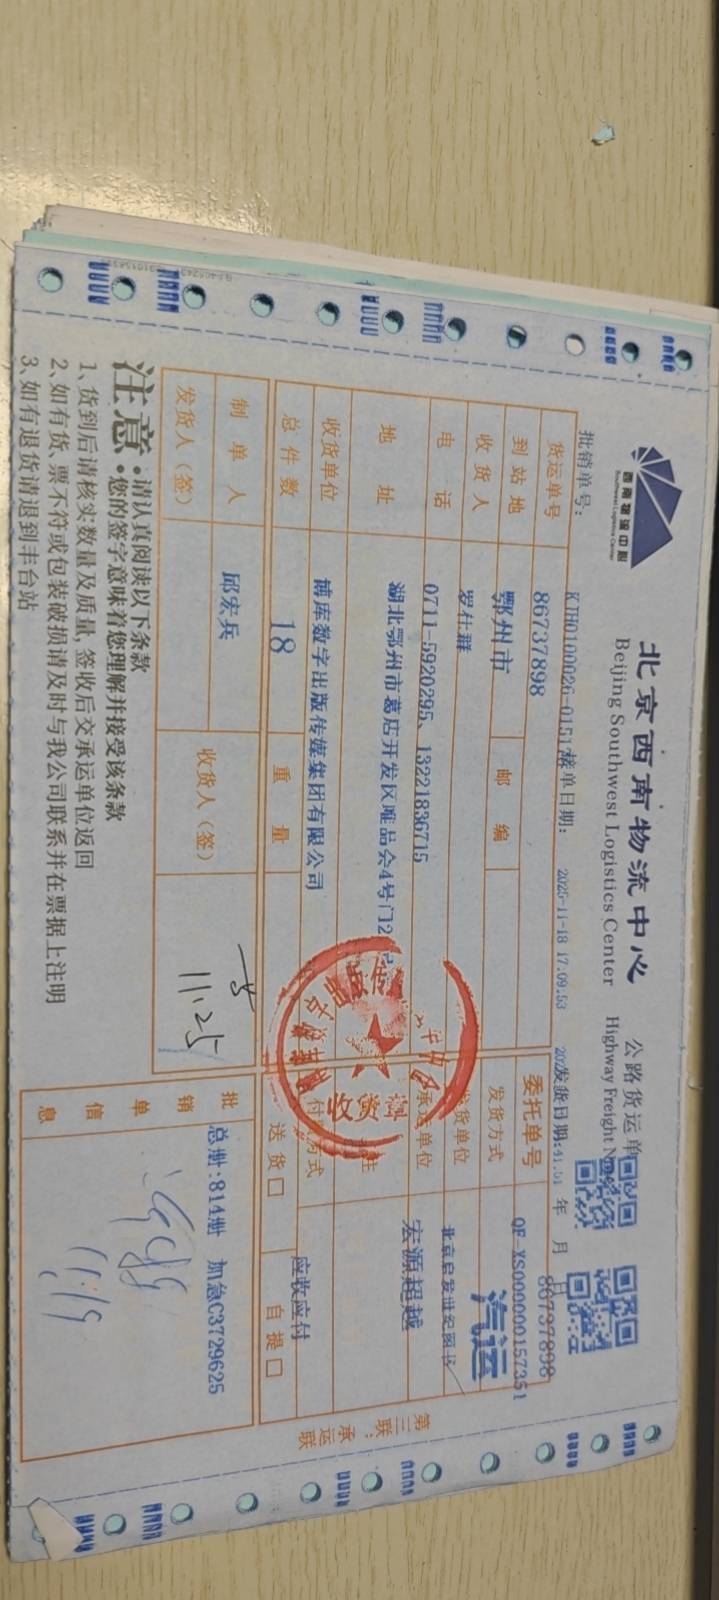 西南物流中心
Southwest Logistics Center
北京西南物流中心
Beijing Southwest Logistics Center
公路货运单
Highway Freight
批销单号:
KTH0100026-0151
接单日期:
2025-11-18 17:09:53
发货日期:
年 月 日
货运单号
86737898
委托单号
QF-XS00000015735
86737898
到站地
鄂州市
邮编
发货方式
汽运
收货人
罗仕群
发货单位
北京启发世纪图书
电话
0711-5920295、13221836715
承运单位
宏源超越
地址
湖北鄂州市葛店开发区唯品会4号门2
收货单位
博库数字出版传媒集团有限公司
付 方式
应收应付
总件数
18
重量
送货□
自提□
制单人
邱宏兵
收货人(签)
11.25
发货人(签)
批销单信息
总册:814册 加急C3729625
11.19
收货章
第三联:承运联
注意
•请认真阅读以下条款
•您的签字意味着您理解并接受该条款
1、货到后请核实数量及质量,签收后交承运单位返回
2、如有货、票不符或包装破损请及时与我公司联系并在票据上注明
3、如有退货请退到丰台站